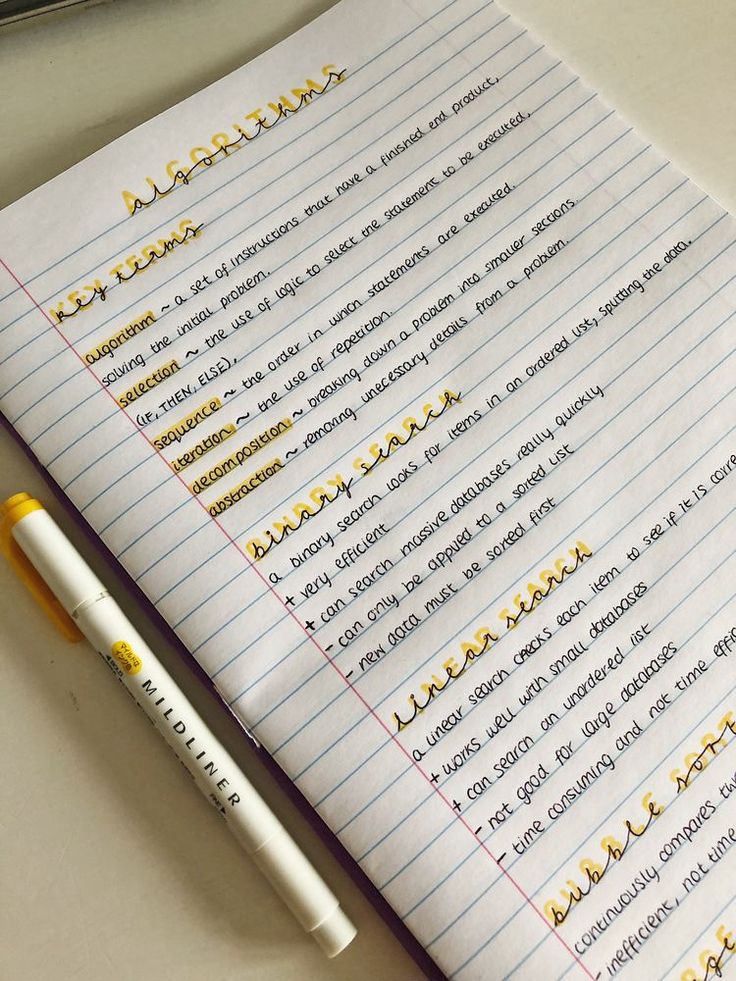 algorithms
key terms
algorithm ~ a set of instructions that have a finished end product,
solving the initial problem.
selection ~ the use of logic to select the statement to be executed,
(IF, THEN, ELSE),
sequence ~ the order in which statements are executed.
iteration ~ the use of repetition.
decomposition ~ breaking down a problem into smaller sections.
abstraction ~ removing unecessary details from a problem.
binary search
a binary search looks for items in an ordered list, splitting the data.
+ very efficient
+ can search massive databases really quickly
- can only be applied to a sorted list
- new data must be sorted first
linear search
a linear search checks each item to see if it is corre
+ works well with small databases
+ can search an unordered list
- not good for large databases
- time consuming and not time effi
bubble sort
continuously compares tw
- inefficient, not time
MILDLINER